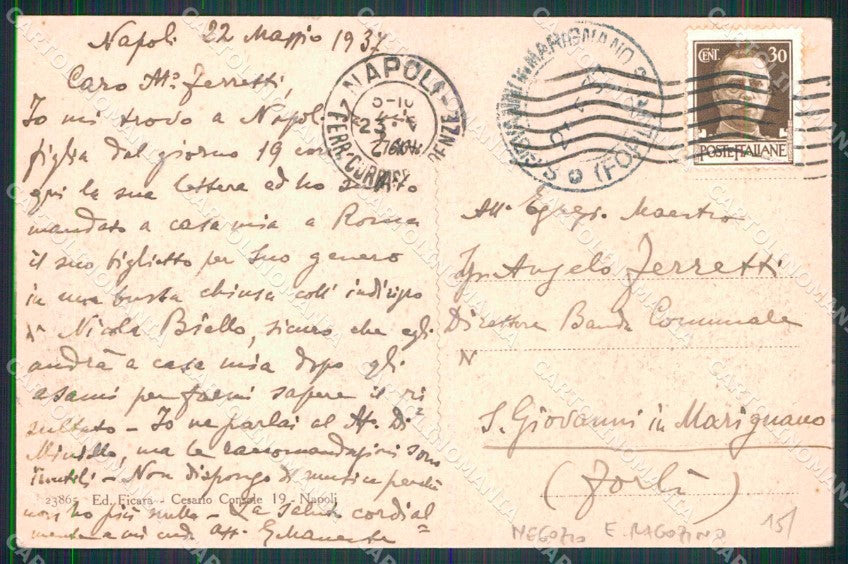 Napoli 22 Maggio 1937
Caro M.º Ferretti,
Io mi trovo a Napoli da mia
figlia dal giorno 19 corr.
qui la sua lettera ed ho subito
mandato a casa mia a Roma
il suo biglietto per Suo genero
in una busta chiusa coll' indirizzo
di Nicola Biello, sicuro che egli
andrà a casa mia dopo gli
esami per farmi sapere il ri
sultato - Io ne parlai al M.º Di
Miniello, ma le raccomandazioni sono
inutili - Non dispongo di musica perché
non ho più nulla - La saluto cordial
mente e mi creda aff. G. Manente
23865 Ed. Ficara - Cesario Console 19 - Napoli
NAPOLI
FERR. CORRISP.
S. GIOVANNI IN MARIGNANO
(FORLÌ)
CENT. 30
POSTE ITALIANE
All' Egregio Maestro
Angelo Ferretti
Direttore Banda Comunale
N
S. Giovanni in Marignano
(Forlì)
NEGOZIO E. RAGOZINO
15/
CARTOLINOMANIA